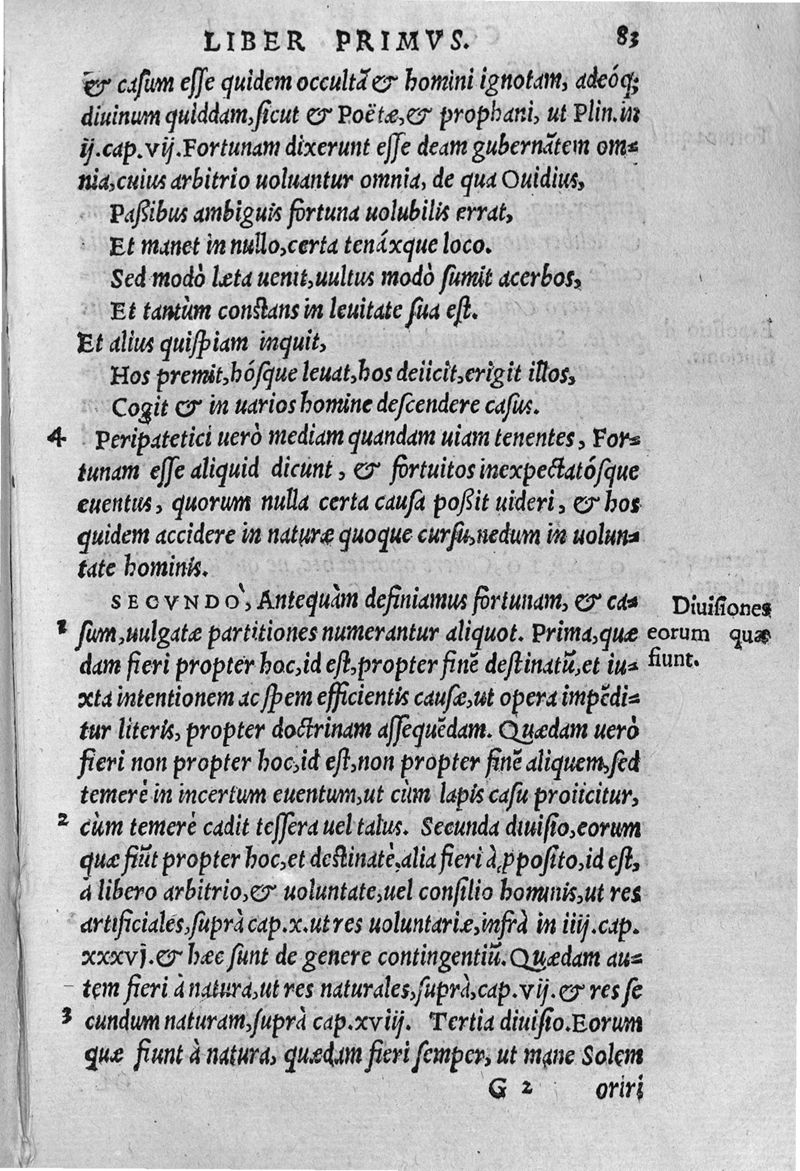 LIBER PRIMVS. 83
& caſum eſſe quidem occultā & homini ignotam, adeóq;
diuinum quiddam, ſicut & Poëtæ, & prophani, ut Plin. in
ij. cap. vij. Fortunam dixerunt eſſe deam gubernātem om-
nia, cuius arbitrio uoluantur omnia, de qua Ouidius,
Paßibus ambiguis fortuna uolubilis errat,
Et manet in nullo, certa tenáxque loco.
Sed modò læta uenit, uultus modò ſumit acerbos,
Et tantùm conſtans in leuitate ſua eſt.
Et alius quiſpiam inquit,
Hos premit, hóſque leuat, hos deiicit, erigit illos,
Cogit & in uarios homine deſcendere caſus.
4 Peripatetici uerò mediam quandam uiam tenentes, For-
tunam eſſe aliquid dicunt, & fortuitos inexpectatóſque
euentus, quorum nulla certa cauſa poßit uideri, & hos
quidem accidere in naturæ quoque curſu, nedum in uolun-
tate hominis.
SECVNDÒ, Antequàm definiamus fortunam, & ca-
Diuiſiones
1 ſum, uulgatæ partitiones numerantur aliquot. Prima, quæ
eorum quæ
dam fieri propter hoc, id eſt, propter finē deſtinatū, et iu-
fiunt.
xta intentionem ac ſpem efficientis cauſæ, ut opera impēdi-
tur literis, propter doctrinam aſſequēdam. Quædam uerò
fieri non propter hoc, id eſt, non propter finē aliquem, ſed
temerè in incertum euentum, ut cùm lapis caſu proiicitur,
2 cùm temerè cadit teſſera uel talus. Secunda diuiſio, eorum
quæ fiūt propter hoc, et deſtinatè, alia fieri à ꝓpoſito, id eſt,
à libero arbitrio, & uoluntate, uel conſilio hominis, ut res
artificiales, ſuprà cap. x. ut res uoluntariæ, infrà in iiij. cap.
xxxvj. & hæc ſunt de genere contingentiū. Quædam au-
tem fieri à natura, ut res naturales, ſuprà, cap. vij. & res ſe
3 cundum naturam, ſuprà cap. xviij. Tertia diuiſio. Eorum
quæ fiunt à natura, quædam fieri ſemper, ut mane Solem
G 2 oriri